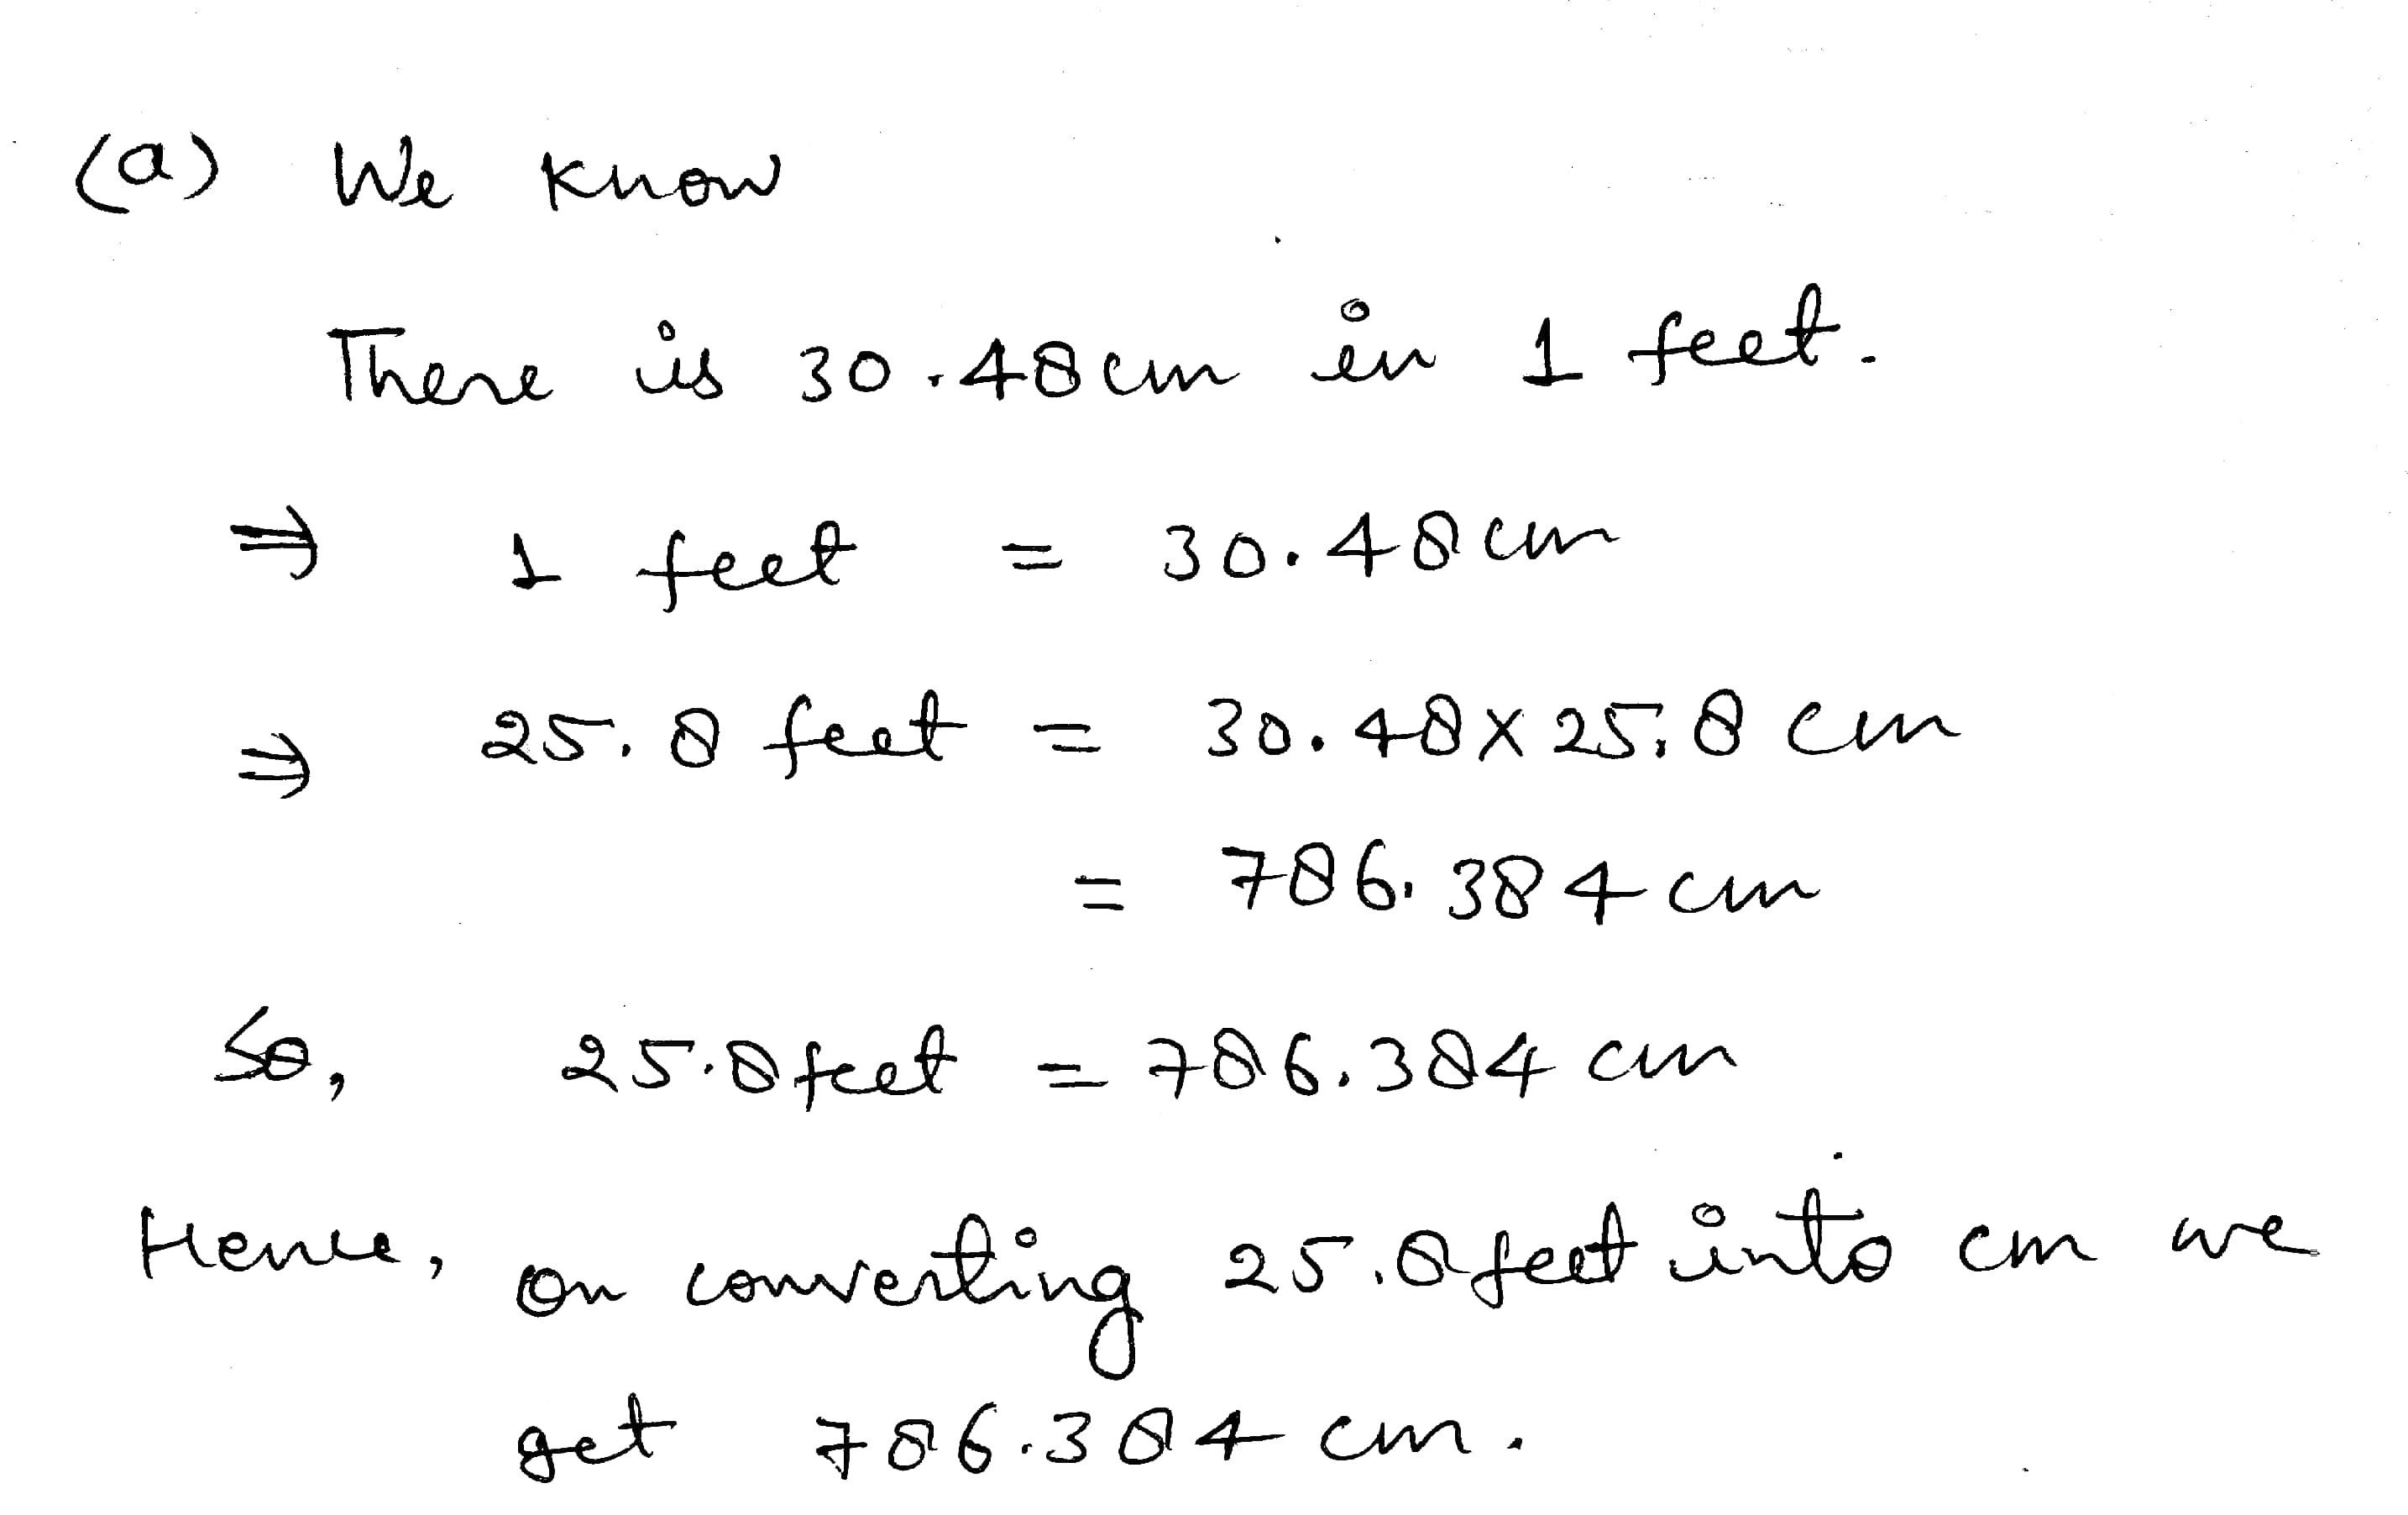 (a) We know
There is 30.48cm in 1 feet.
⇒ 1 feet = 30.48cm
⇒ 25.8 feet = 30.48x25.8 cm
= 786.384 cm
So, 25.8 feet = 786.384 cm
Hence, on converting 25.8 feet into cm we
get 786.384 cm.